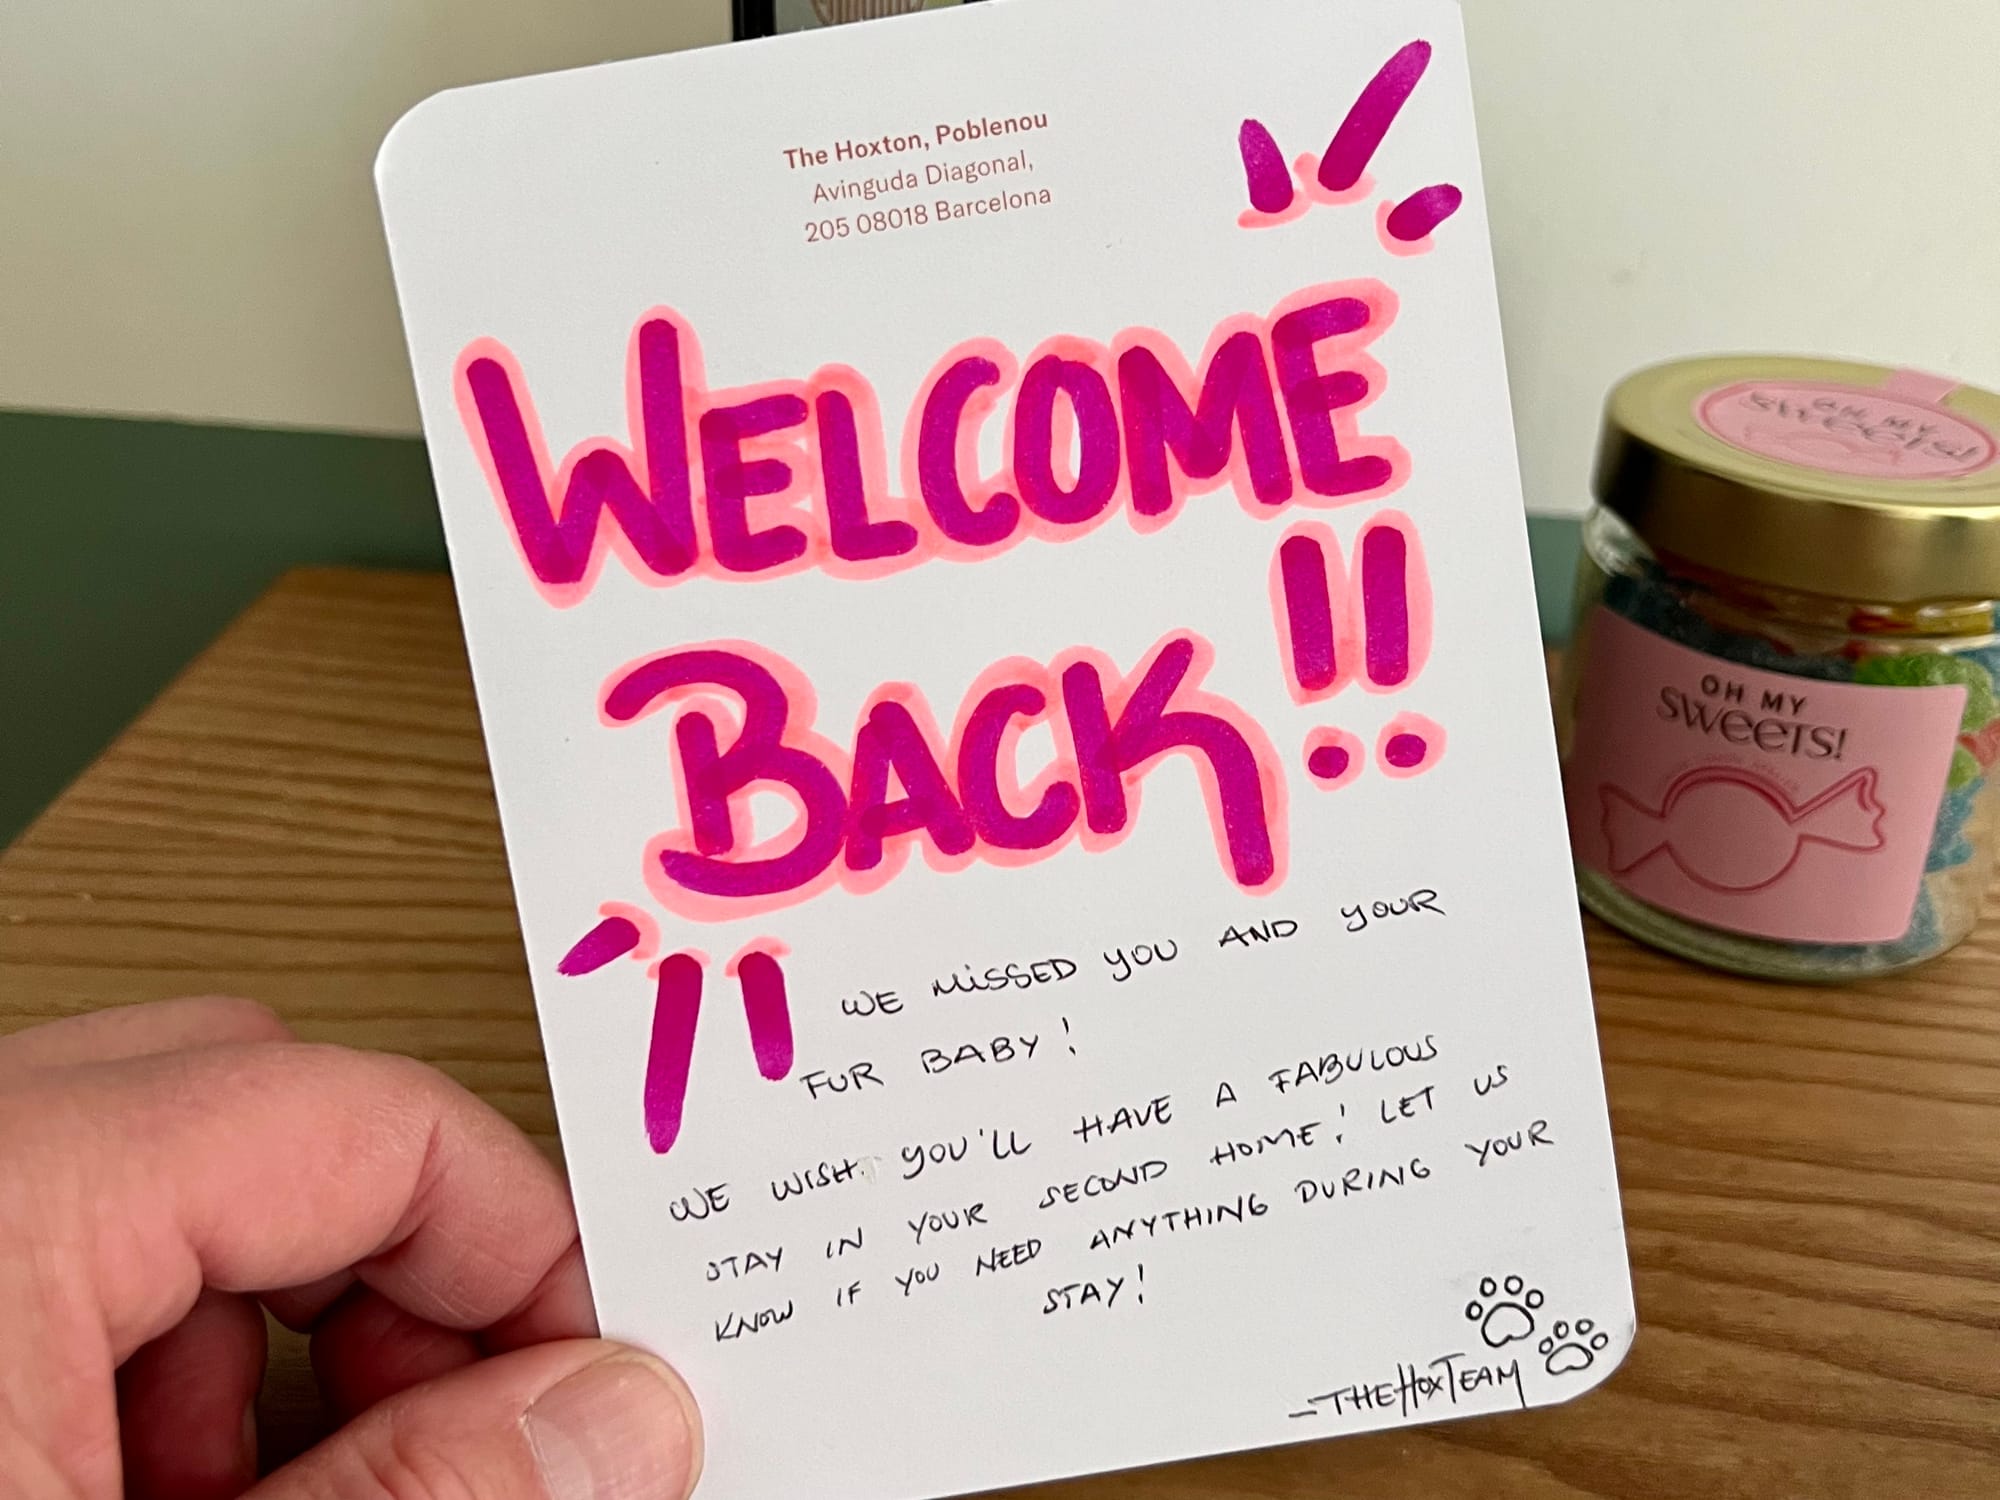 The Hoxton, Poblenou
Avinguda Diagonal,
205 08018 Barcelona
WELCOME
BACK!!
WE MISSED YOU AND YOUR
FUR BABY!
WE WISH YOU'LL HAVE A FABULOUS
STAY IN YOUR SECOND HOME! LET US
KNOW IF YOU NEED ANYTHING DURING YOUR
STAY!
- THE HOX TEAM
OH MY
SWEETS!
OH MY
SWEETS!